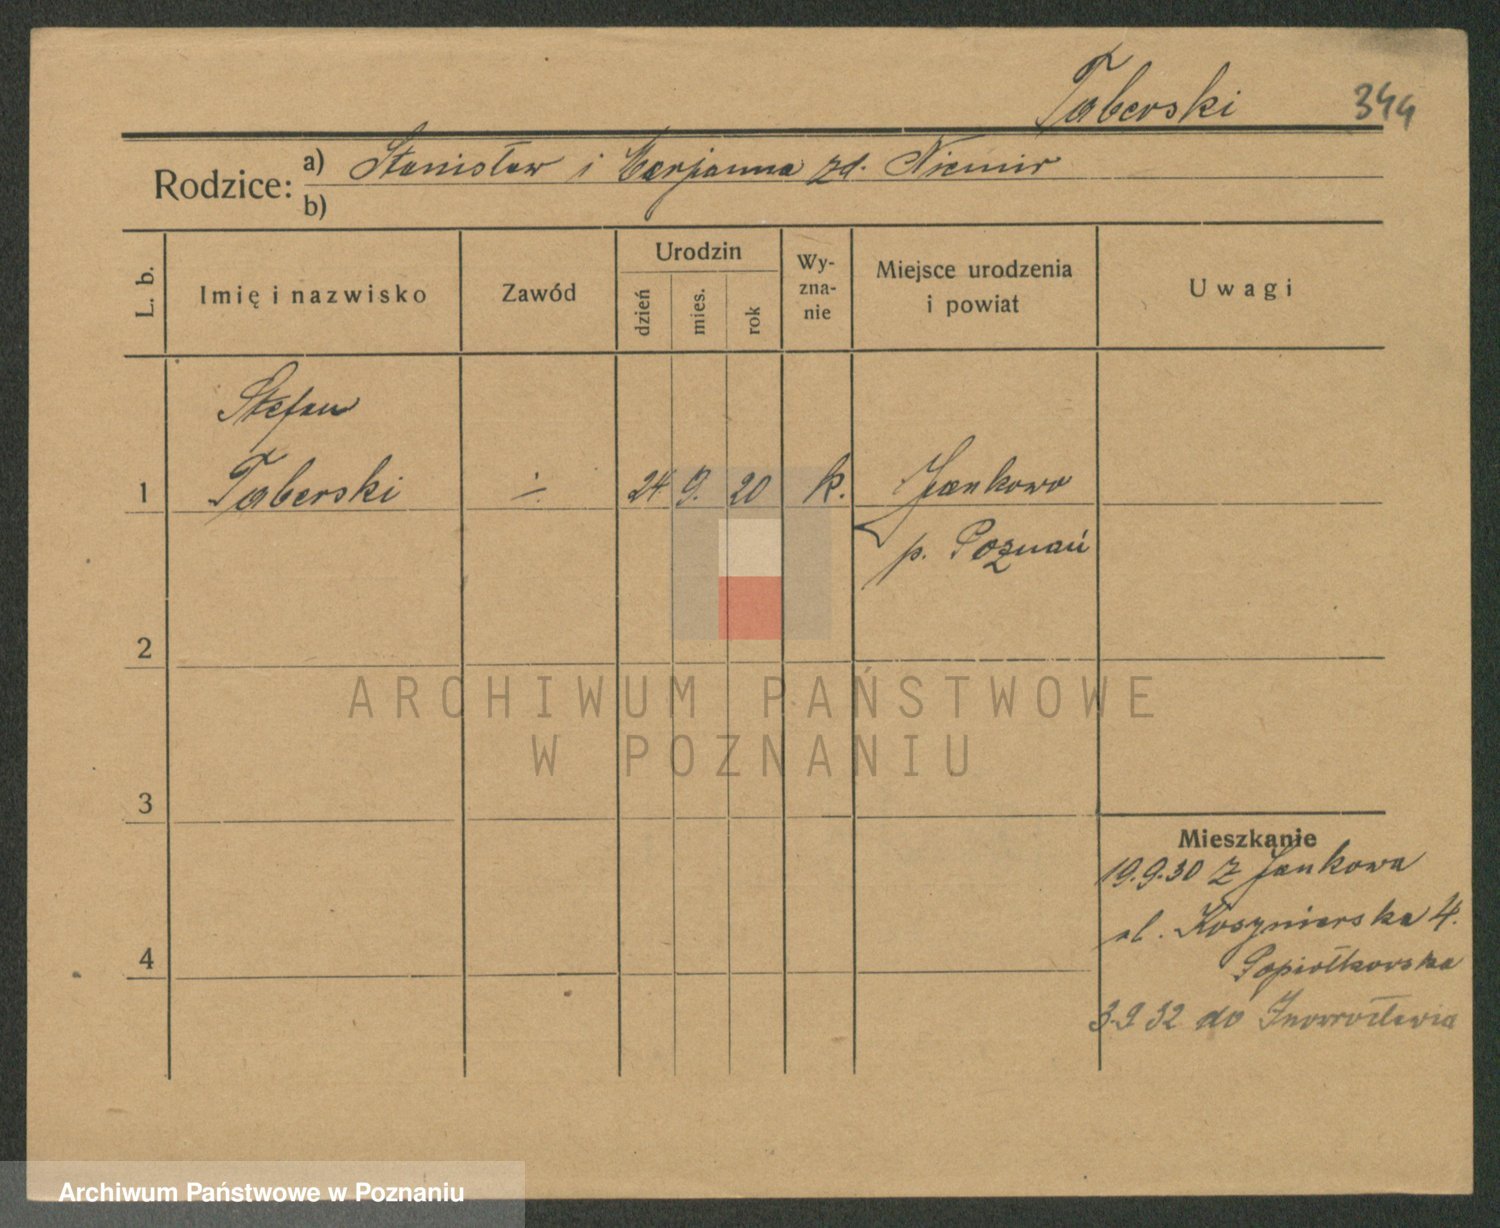 Taberski 344
Rodzice: a) Stanisław i Marjanna zd. Niemir
b)
L. b. Imię i nazwisko Zawód Urodzin dzień mies. rok Wy-zna-nie Miejsce urodzenia i powiat Uwagi
Stefan
1 Taberski ÷ 24 9. 20 k. Jankowo
p. Poznań
2
ARCHIWUM PAŃSTWOWE
W POZNANIU
3
Mieszkanie
19.9.30 z Jankowa
ul. 4.
4 Popiołkowska
3.9 32 do Inowrocławia
Archiwum Państwowe w Poznaniu